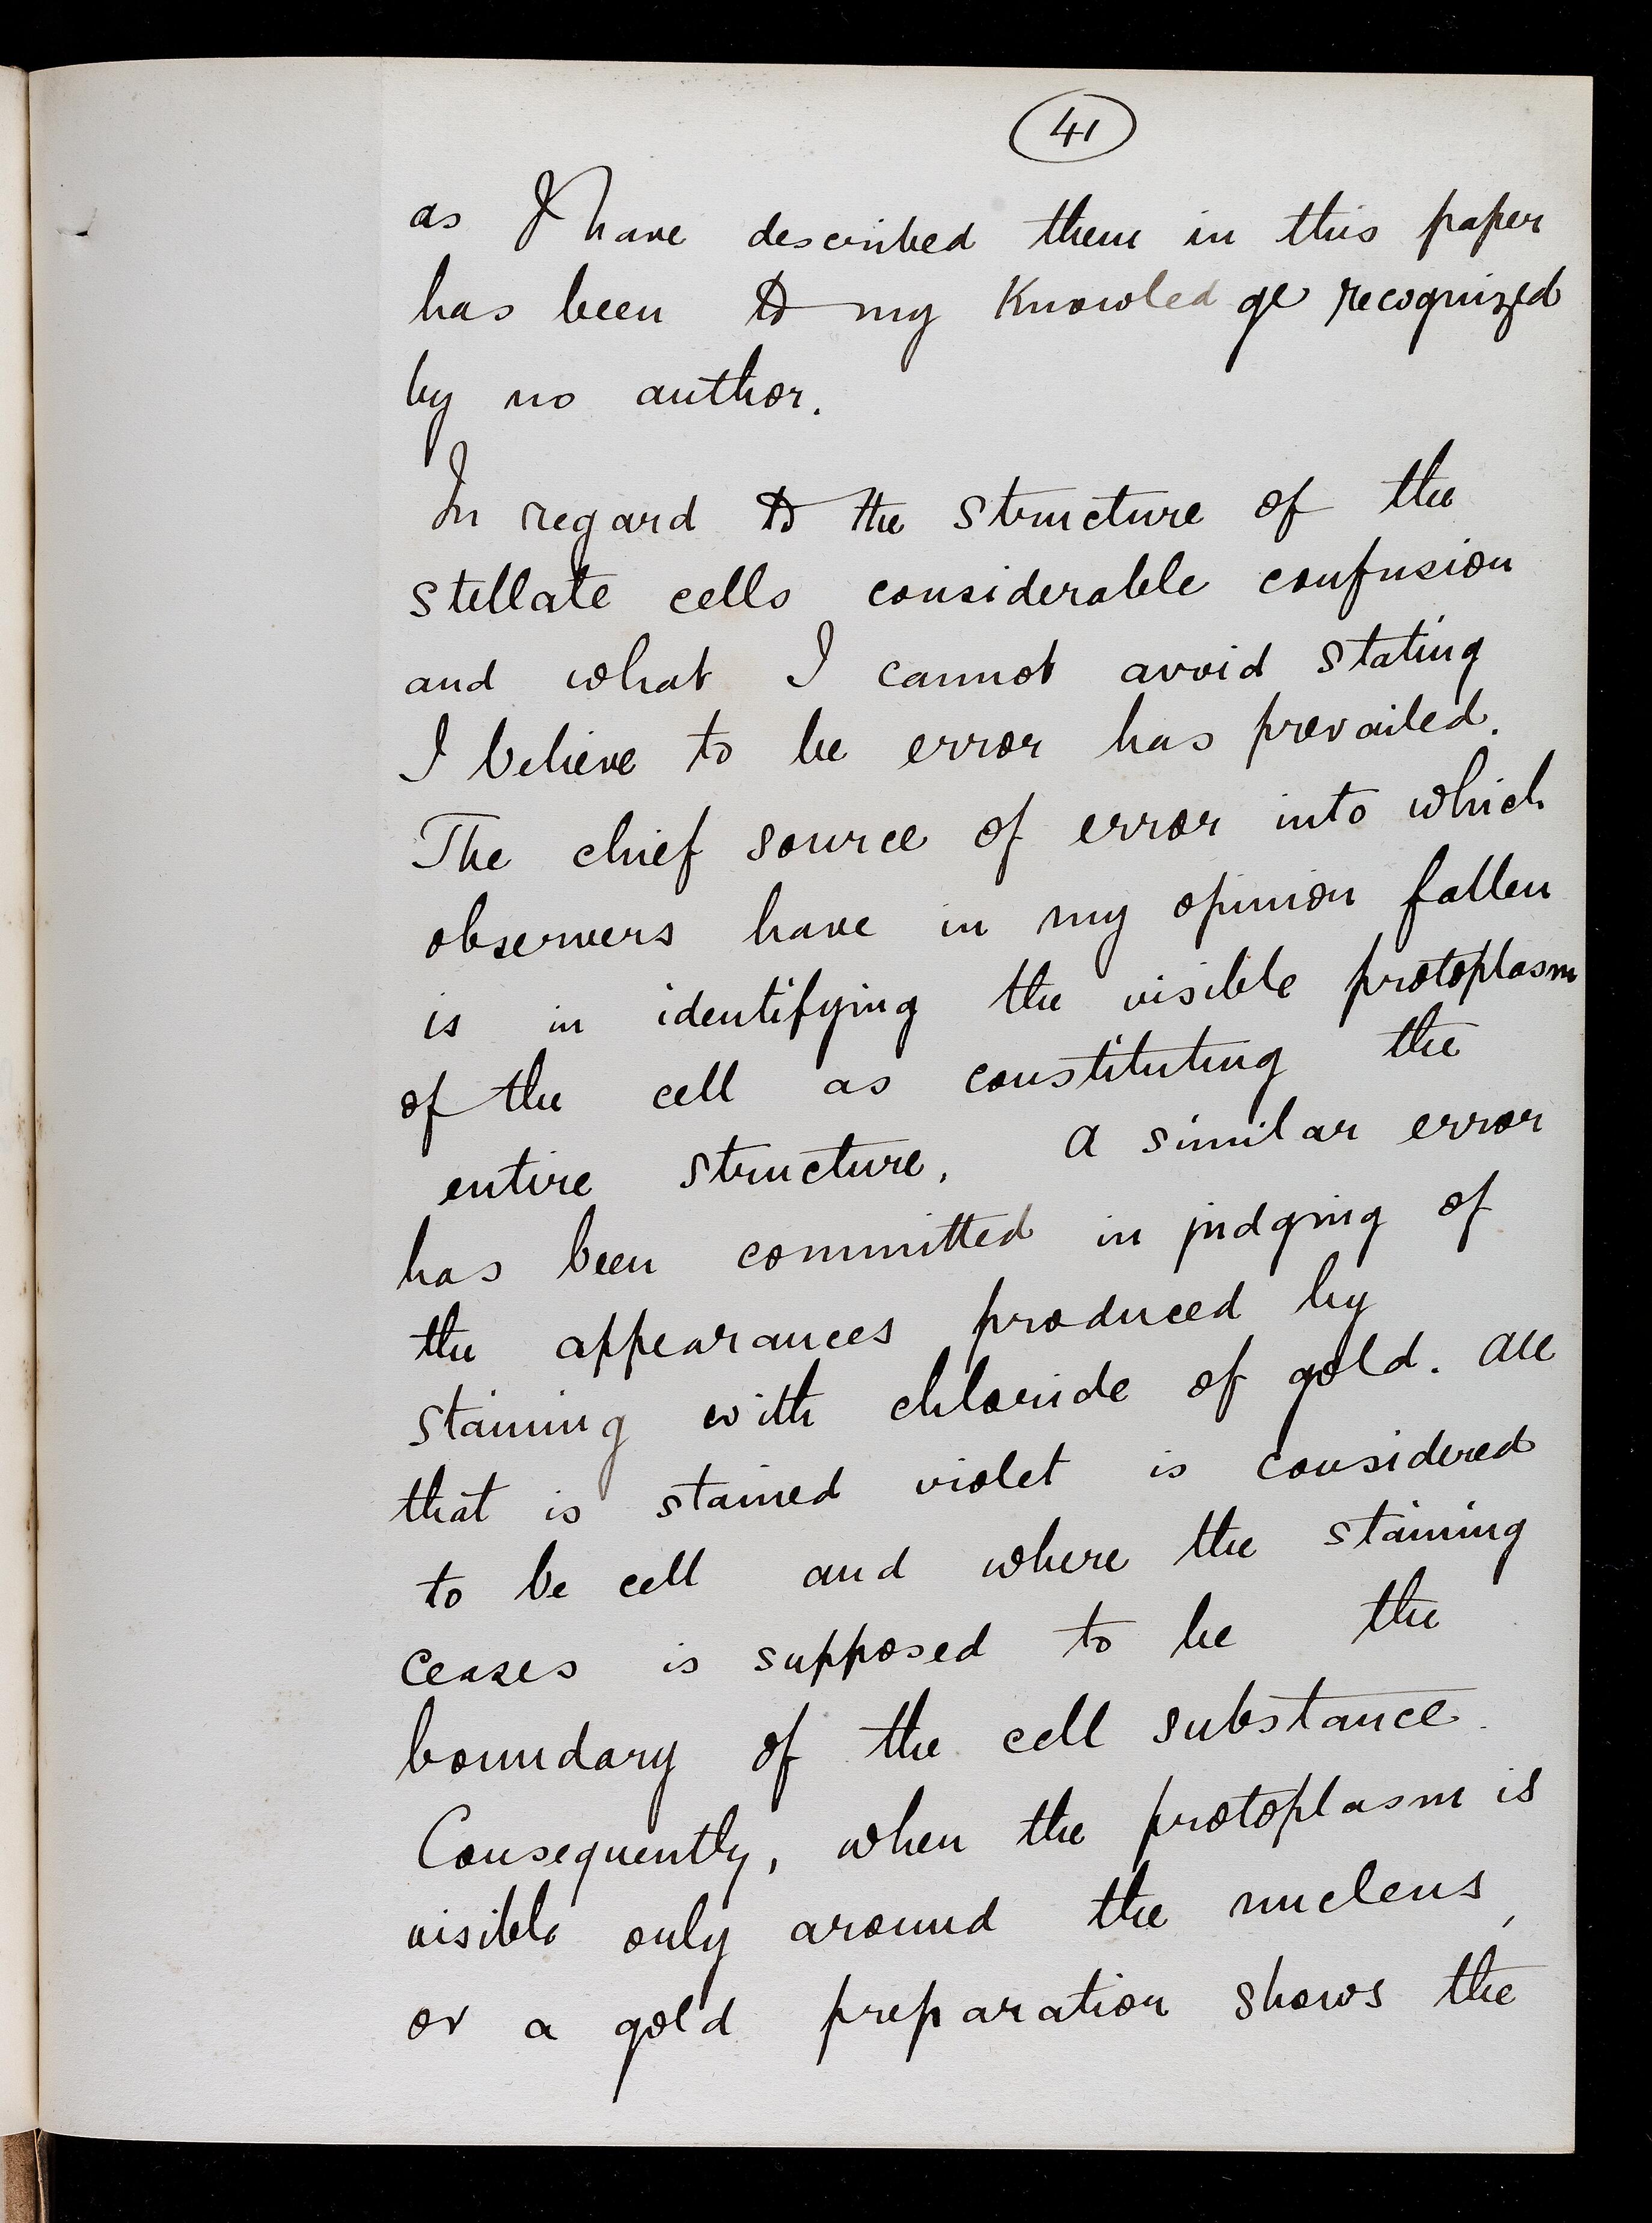 41
as I have described them in this paper
has been to my knowledge recognized
by no author.
In regard to the structure of the
stellate cells considerable confusion
and what I cannot avoid stating
I believe to be error has prevailed.
The chief source of error into which
observers have in my opinion fallen
is in identifying the visible protoplasm
of the cell as constituting the
entire structure. A similar error
has been committed in judging of
the appearances produced by
staining with chloride of gold. All
that is stained violet is considered
to be cell and where the staining
ceases is supposed to be the
boundary of the cell substance.
Consequently, when the protoplasm is
visible only around the nucleus,
or a gold preparation shows the